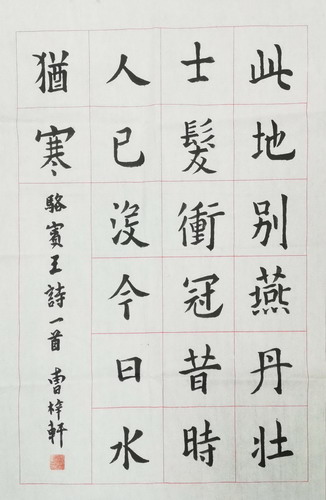 此地别燕丹壯
士髮衝冠昔時
人已沒今日水
猶寒
駱賓王詩一首 曹梓軒